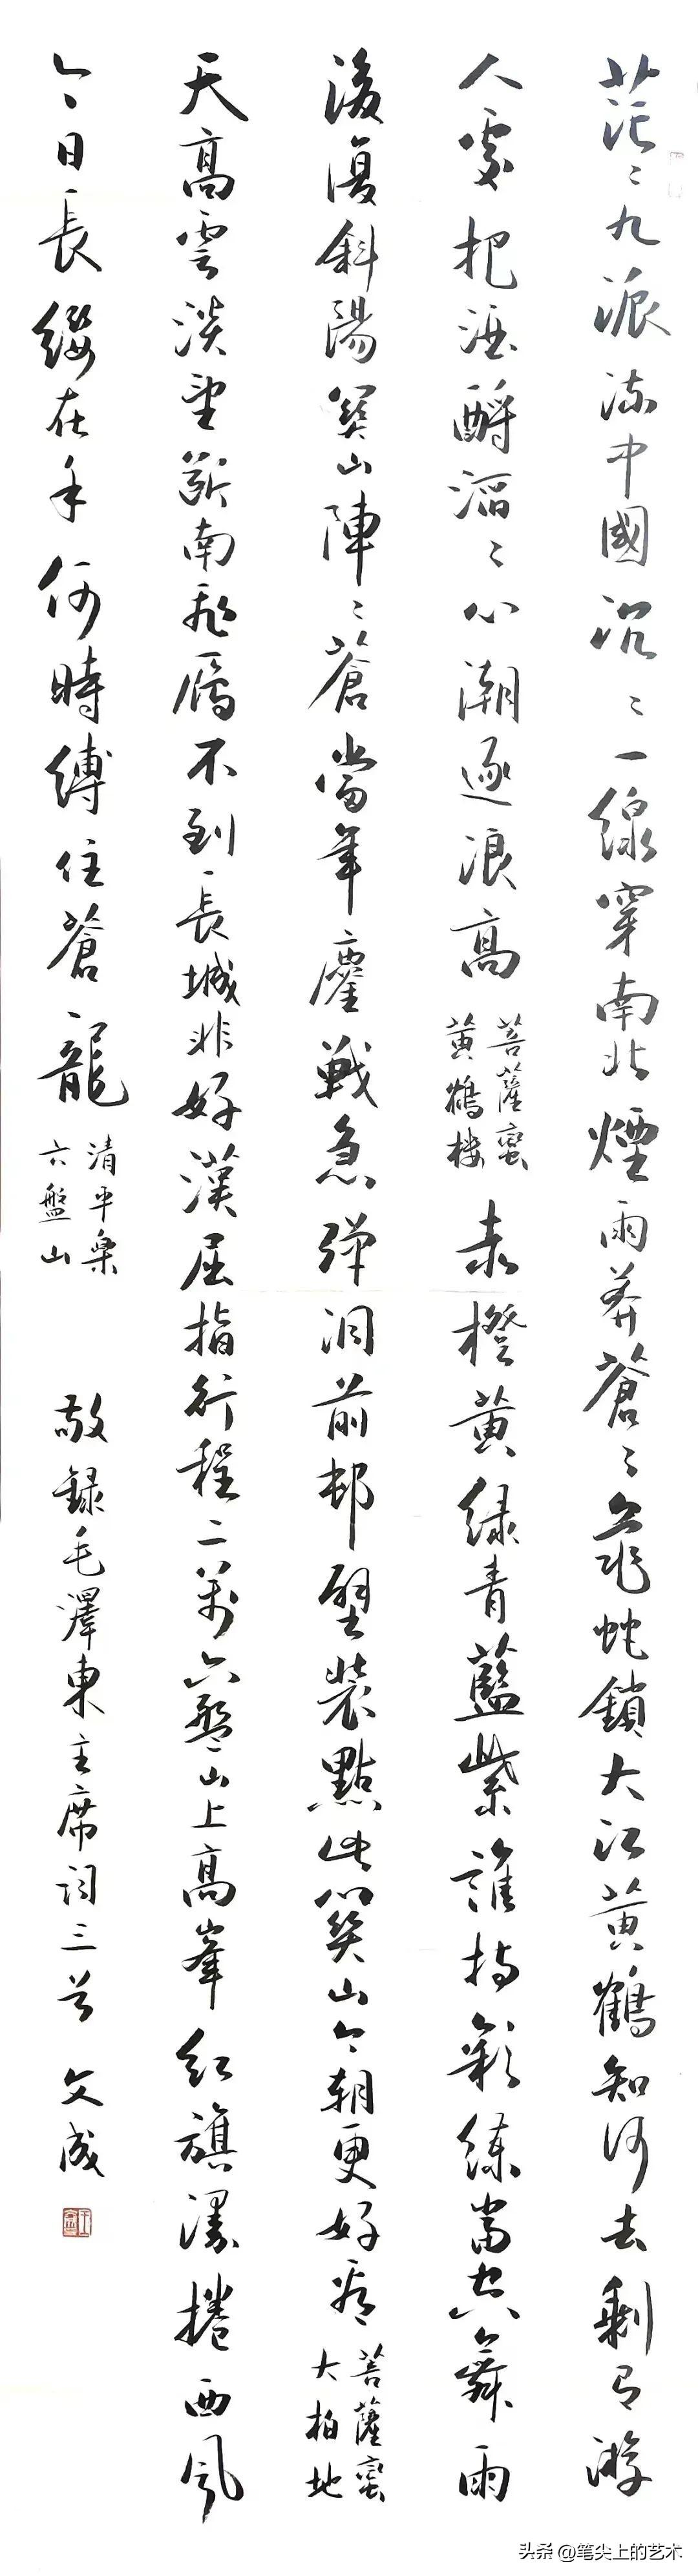 茫〻九派流中國沉〻一線穿南北煙雨莽蒼〻龜蛇鎖大江黄鶴知何去剩有游
人處把酒酹滔〻心潮逐浪高
菩薩蠻
黄鶴楼
赤橙黄緑青藍紫誰持彩練當空舞雨
後復斜陽関山陣〻蒼當年鏖戰急弹洞前邨壁装點此関山今朝更好看
菩薩蠻
大柏地
天高雲淡望断南飛雁不到長城非好漢屈指行程二萬六盤山上高峯紅旗漫捲西風
今日長纓在手何時縛住蒼龍
清平樂
六盤山
敬録毛澤東主席词三首 文成
头条 @笔尖上的艺术